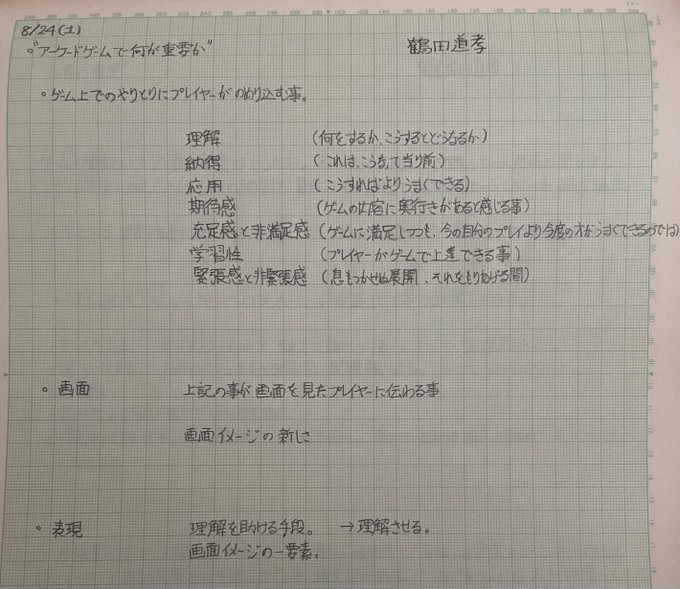 8/24(土)
。"アーケードゲームで何が重要か" 鶴田道孝
。ゲーム上でのやりとりにプレイヤーがのめり込む事。
理解 (何をするか、こうするとどうなるか)
納得 (これは、こうなって当り前)
応用 (こうすればよりうまくできる)
期待感 (ゲームの内容に奥行きがあると感じる事)
充足感と非満足感 (ゲームに満足しつつも、今の自分のプレイより今度の方がうまくできるのでは)
学習性 (プレイヤーがゲームで上達できる事)
緊張感と非緊張感 (息もつかせぬ展開、それをもりあげる間)
。画面 上記の事が画面を見たプレイヤーに伝わる事
画面イメージの新しさ
。表現 理解を助ける手段。 →理解させる。
画面イメージの一要素。